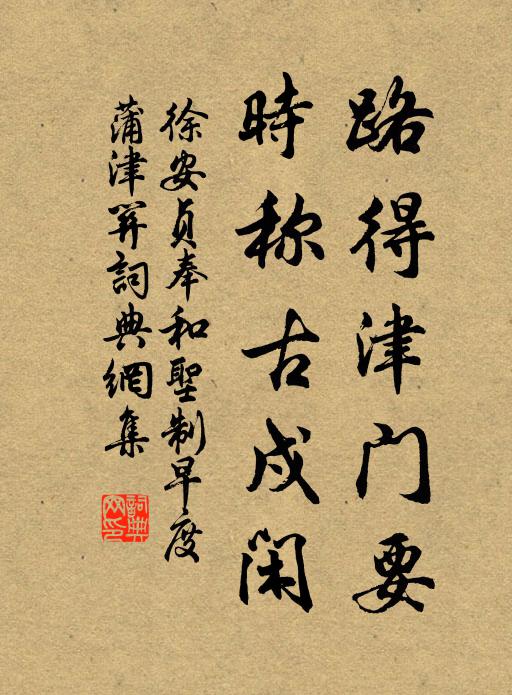 路得津门要
時称古戍闲
徐安貞奉和聖制早度
蒲津關詞典網集
詞典網印